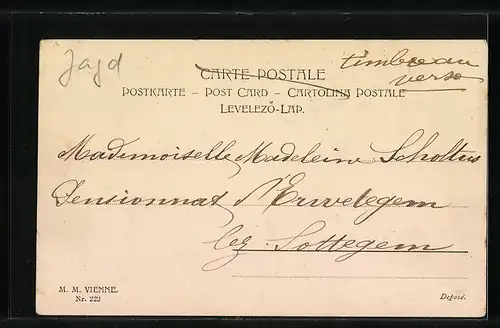 Jagd
timbre au
verso
CARTE POSTALE
POSTKARTE – POST CARD – CARTOLINA POSTALE
LEVELEZŐ-LAP.
Mademoiselle Madeleine Scholtus
Pensionnat d'Erwetegem
lez Sottegem
M. M. VIENNE.
Nr. 222
Deposé.